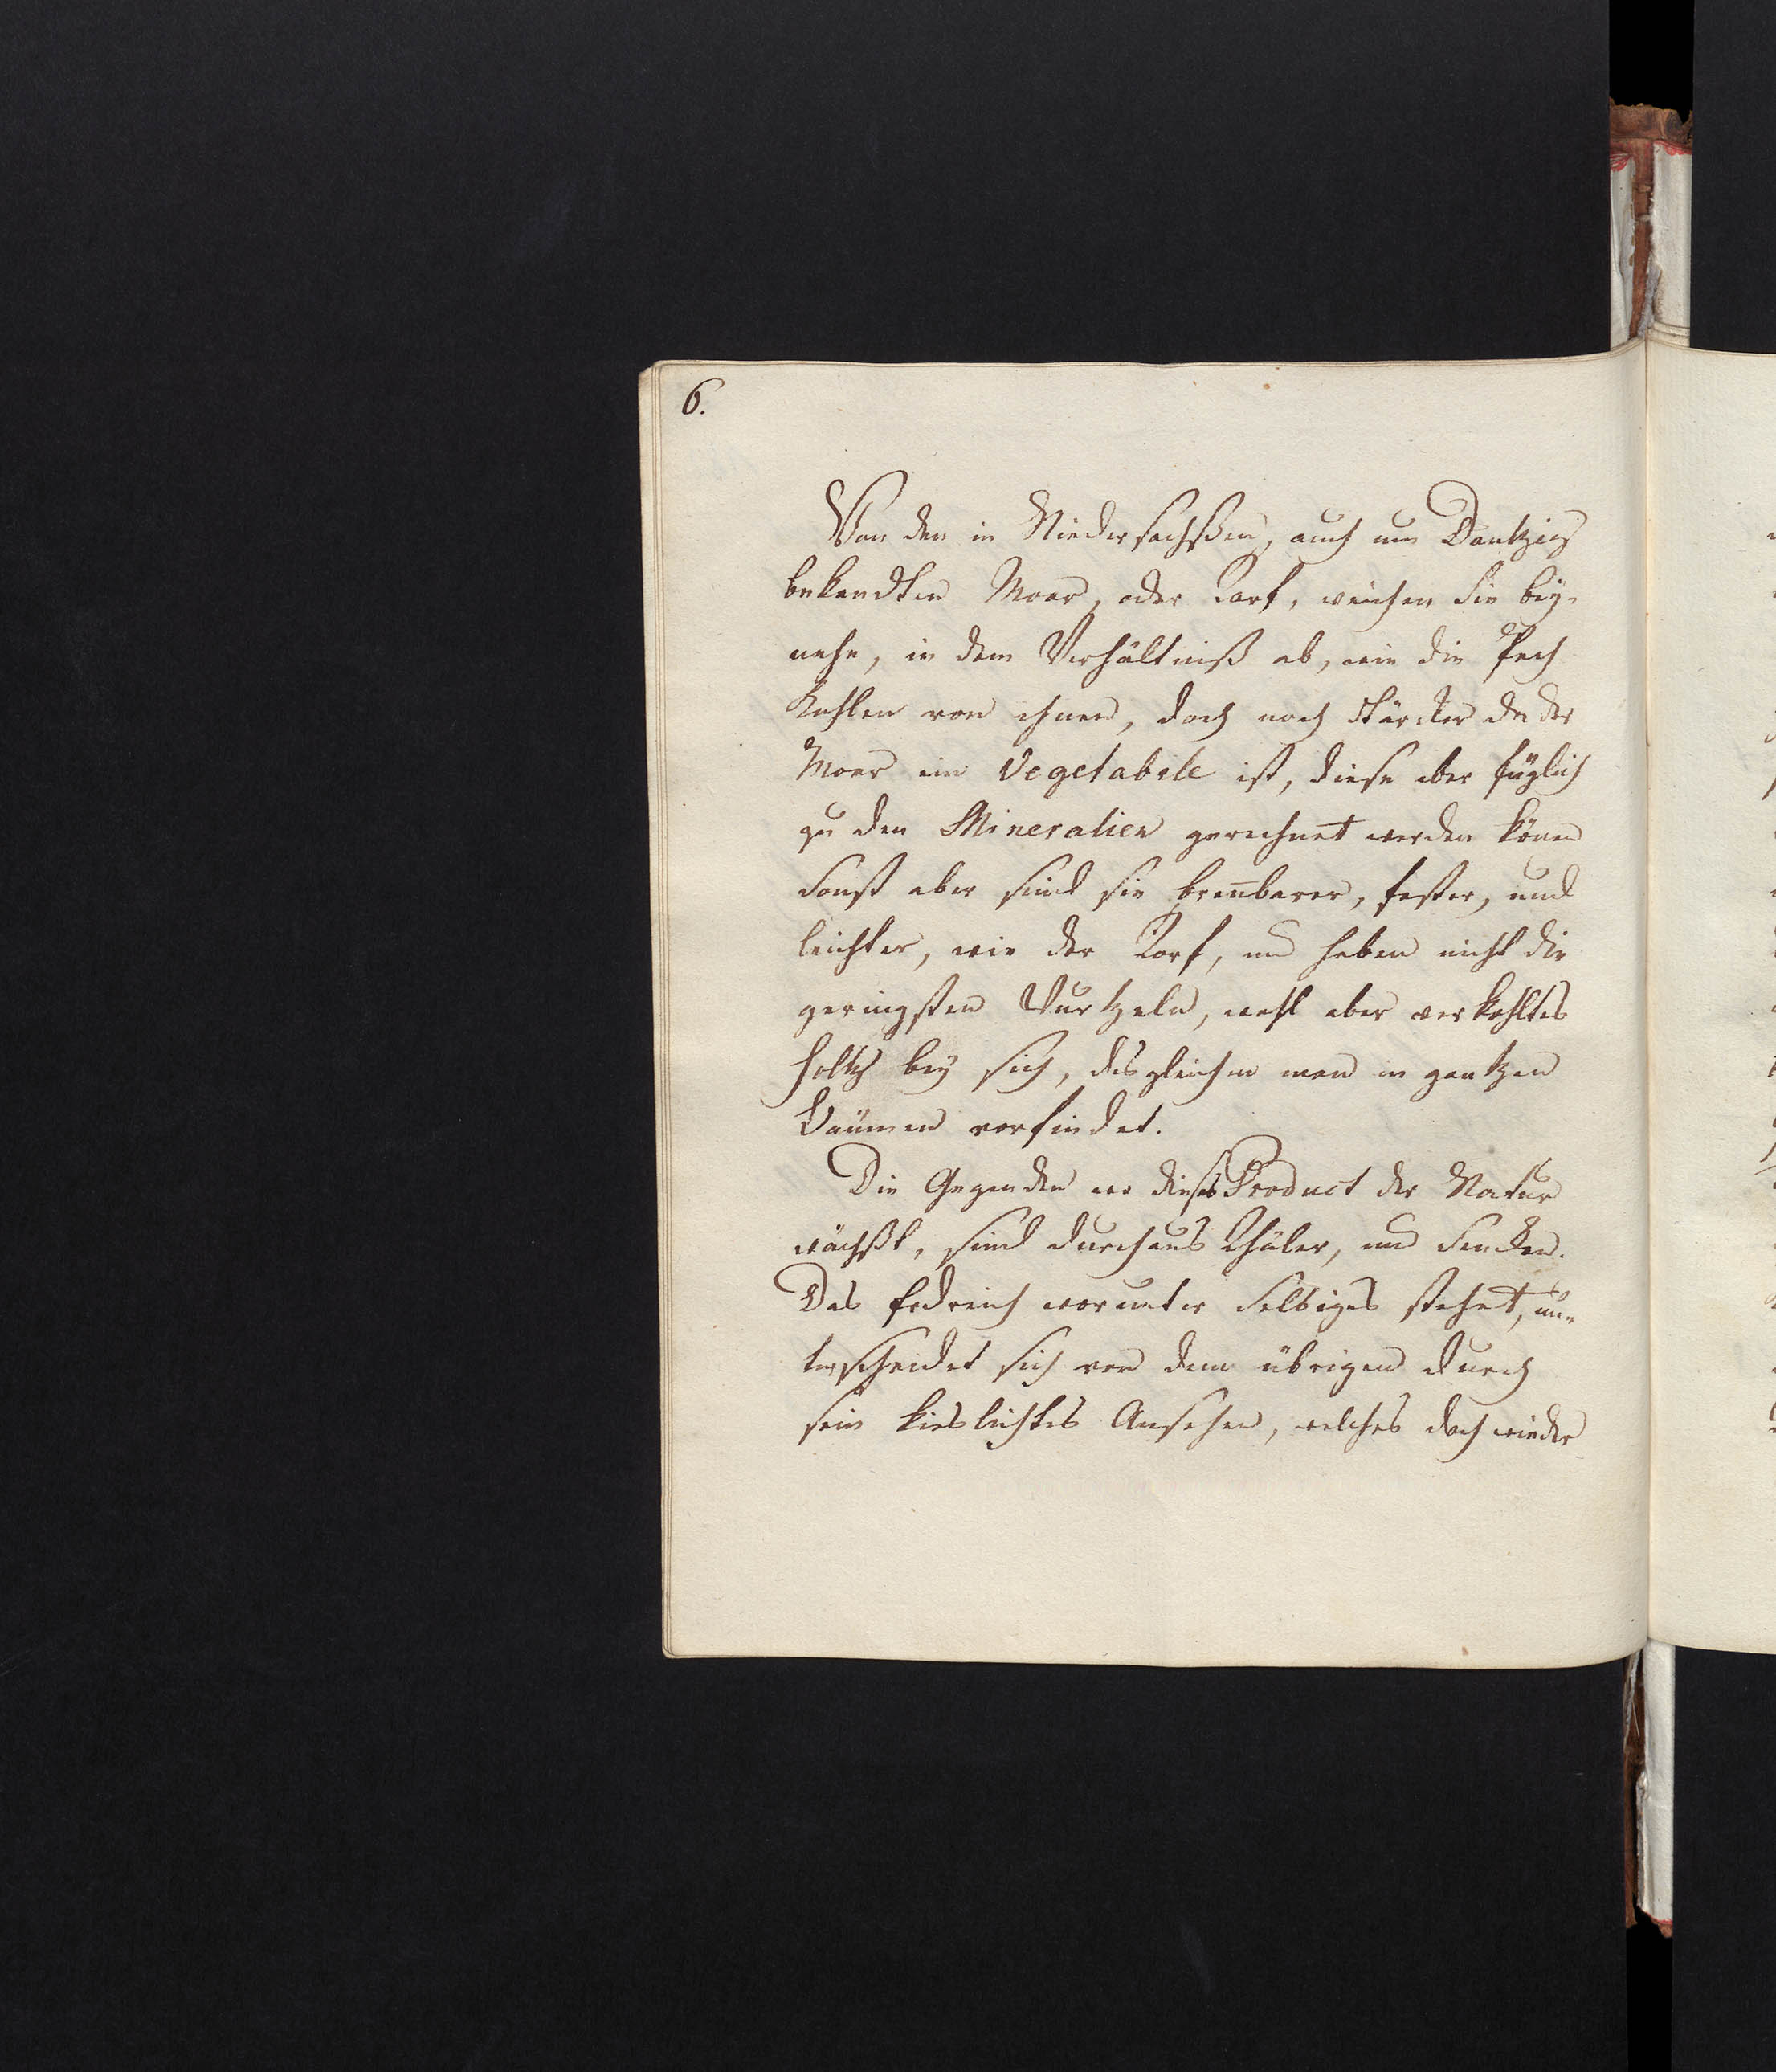 6.
Von den in Niedersachßen, auch um Dantzig
bekandten Moor, oder Torf, weichen sie bey-
nahe, in dem Verhältniß ab, wie die Pech
Kohlen von ihnen, doch noch stärcker da der
Moor ein Vegetabile ist, diese aber füglich
zu den Mineralien gerechnet werden könen
sonst aber sind sie breñbarer, fester, und
leichter, wie der Torf, und haben nicht die
geringsten Wurtzeln, wohl aber verkohltes
Holtz bey sich, desgleichen man in gantzen
Bäumen vorfindet.
Die Gegenden wo dieses Product der Natur
wächßt, sind durchaus Thäler, und Sencken.
Das Erdreich worunter selbiges stehet, un-
terscheidet sich von dem übrigen durch
sein kieslichtes Ansehen, welches doch wieder